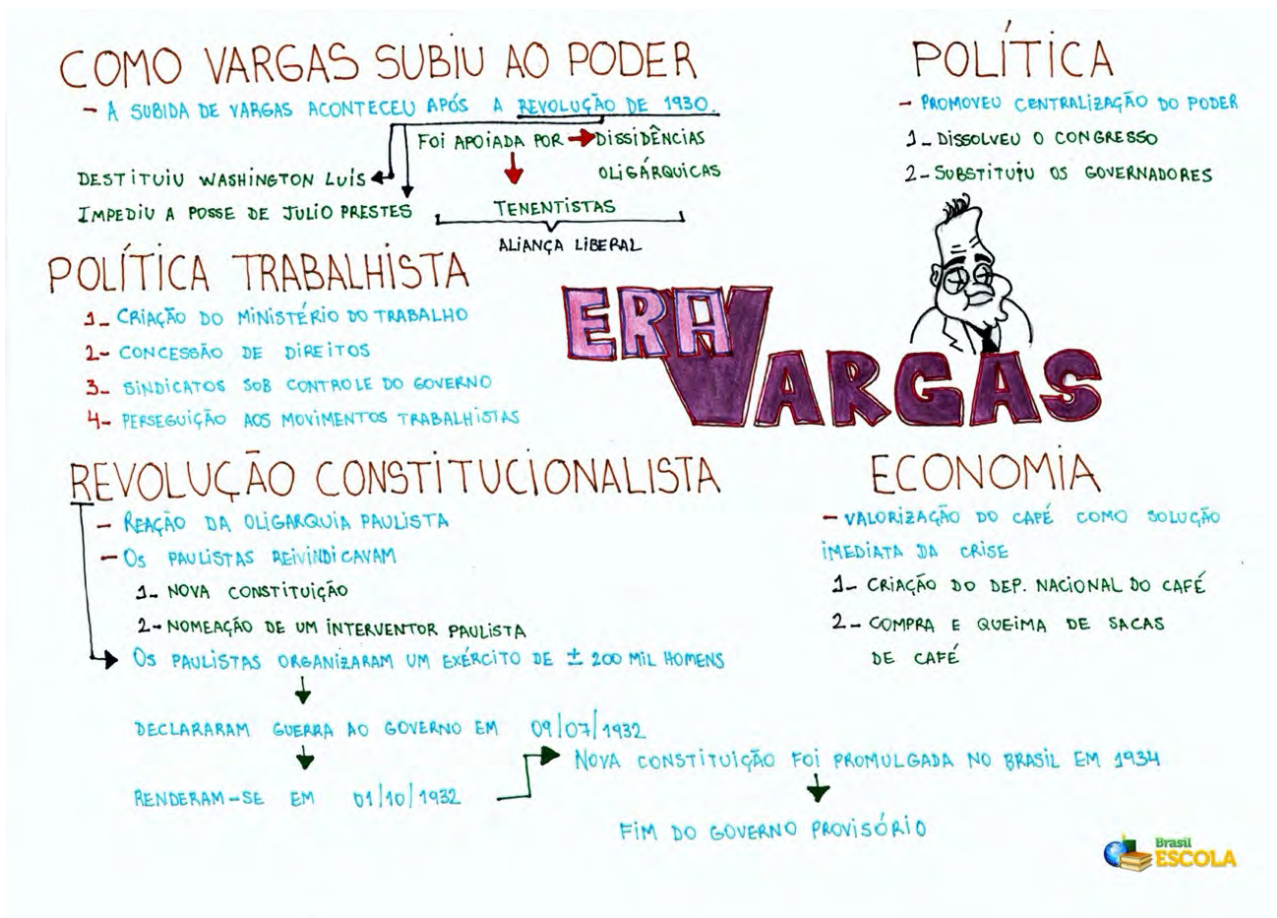 COMO VARGAS SUBIU AO PODER
- A SUBIDA DE VARGAS ACONTECEU APÓS A REVOLUÇÃO DE 1930.
FOI APOIADA POR
DISSIDÊNCIAS
OLIGÁRQUICAS
DESTITUIU WASHINGTON LUÍS
IMPEDIU A POSSE DE JULIO PRESTES
TENENTISTAS
ALIANÇA LIBERAL
POLÍTICA
- PROMOVEU CENTRALIZAÇÃO DO PODER
1- DISSOLVEU O CONGRESSO
2- SUBSTITUIU OS GOVERNADORES
POLÍTICA TRABALHISTA
1- CRIAÇÃO DO MINISTÉRIO DO TRABALHO
2- CONCESSÃO DE DIREITOS
3- SINDICATOS SOB CONTROLE DO GOVERNO
4- PERSEGUIÇÃO AOS MOVIMENTOS TRABALHISTAS
ERA
VARGAS
REVOLUÇÃO CONSTITUCIONALISTA
- REAÇÃO DA OLIGARQUIA PAULISTA
- OS PAULISTAS REIVINDICAVAM
1- NOVA CONSTITUIÇÃO
2- NOMEAÇÃO DE UM INTERVENTOR PAULISTA
OS PAULISTAS ORGANIZARAM UM EXÉRCITO DE ± 200 MIL HOMENS
DECLARARAM GUERRA AO GOVERNO EM 09/07/1932
RENDERAM-SE EM 01/10/1932
NOVA CONSTITUIÇÃO FOI PROMULGADA NO BRASIL EM 1934
FIM DO GOVERNO PROVISÓRIO
ECONOMIA
- VALORIZAÇÃO DO CAFÉ COMO SOLUÇÃO
IMEDIATA DA CRISE
1- CRIAÇÃO DO DEP. NACIONAL DO CAFÉ
2- COMPRA E QUEIMA DE SACAS
DE CAFÉ
Brasil
ESCOLA